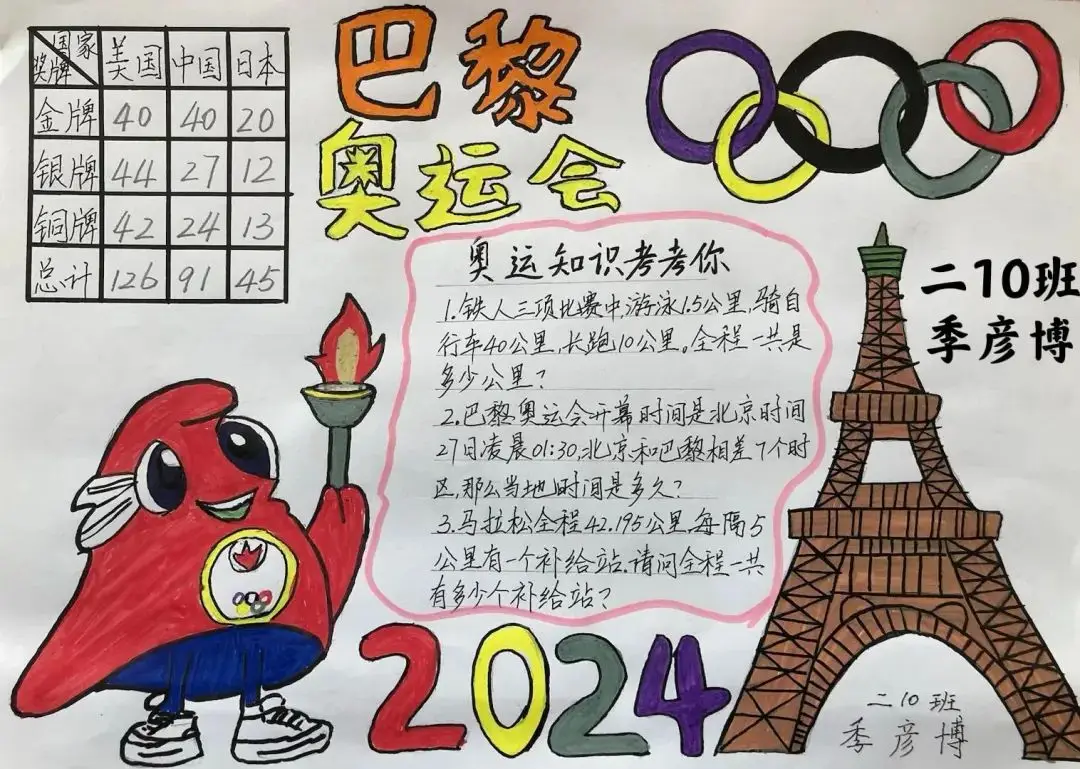 国家
奖牌 美国 中国 日本
金牌 40 40 20
银牌 44 27 12
铜牌 42 24 13
总计 126 91 45
巴黎
奥运会
奥运知识考考你
1.铁人三项比赛中,游泳1.5公里,骑自
行车40公里,长跑10公里。全程一共是
多少公里?
2.巴黎奥运会开幕时间是北京时间
27日凌晨01:30,北京和巴黎相差7个时
区,那么当地时间是多久?
3.马拉松全程42.195公里,每隔5
公里有一个补给站.请问全程一共
有多少个补给站?
二10班
季彦博
2024
二10班
季彦博